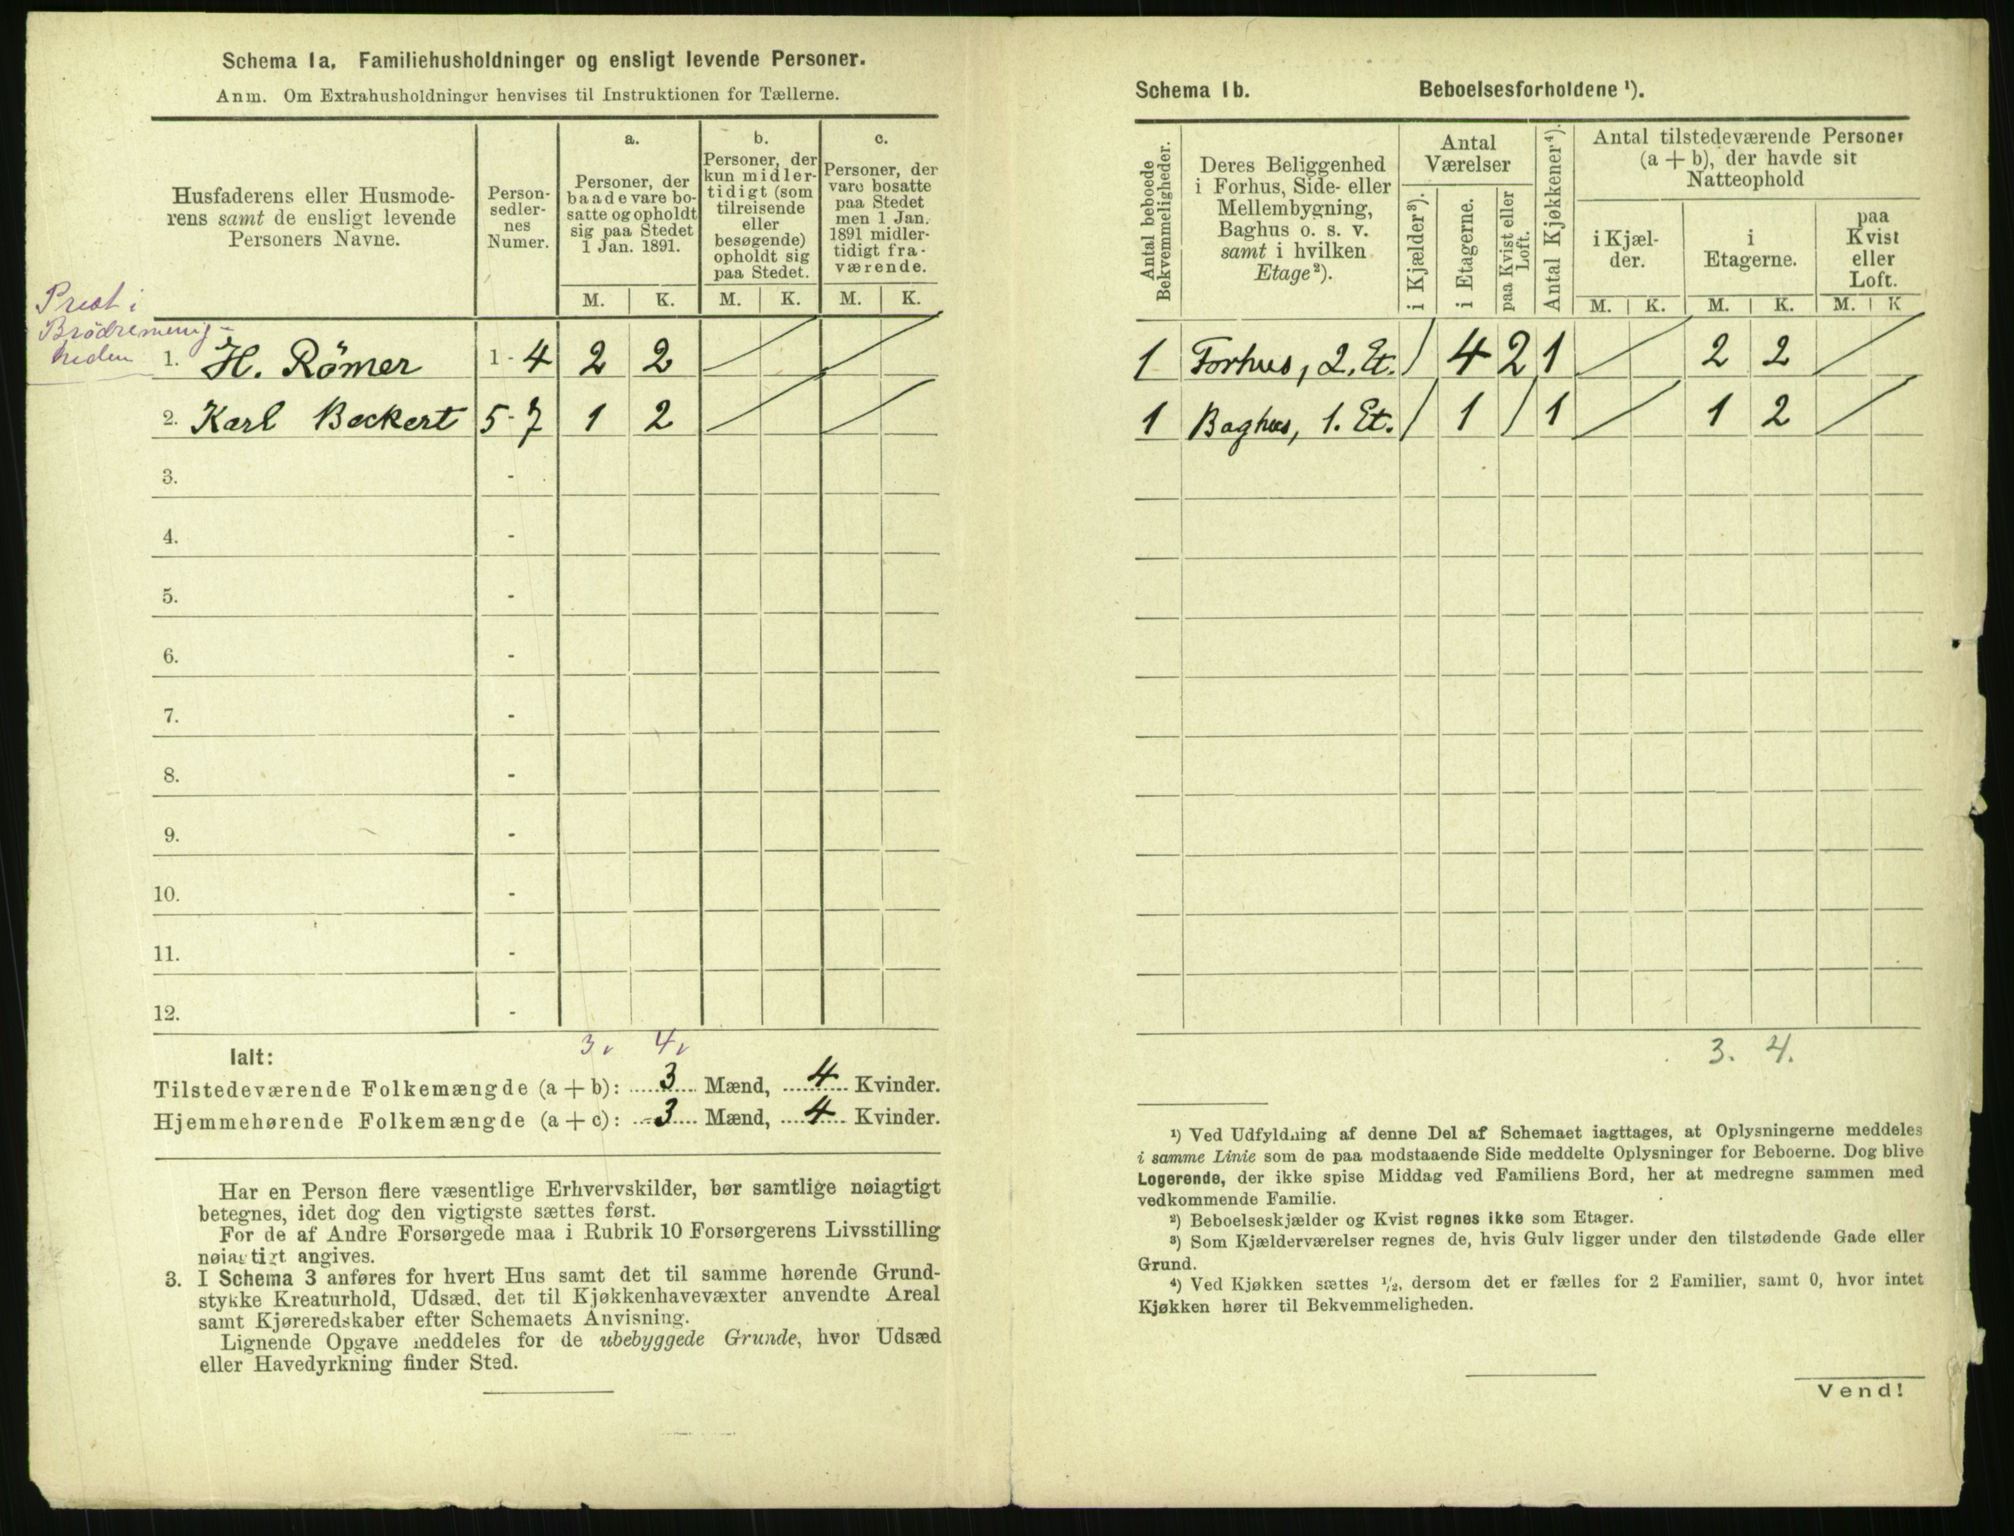 Schema 1a. Familiehusholdninger og ensligt levende Personer.
Anm. Om Extrahusholdninger henvises til Instruktionen for Tællerne.
Husfaderens eller Husmode-
rens samt de ensligt levende
Personers Navne.
Person-
sedler-
nes
Numer.
a.
Personer, der
baade vare bo-
satte og opholdt
sig paa Stedet
1 Jan. 1891.
b.
Personer, der
kun midler-
tidigt (som
tilreisende
eller
besøgende)
opholdt sig
paa Stedet.
c.
Personer, der
vare bosatte
paa Stedet
men 1 Jan.
1891 midler-
tidigt fra-
værende.
M. K. M. K. M. K.
Præst i
Brödremenig-
heden
1. H. Römer 1 - 4 2 2
2. Karl Beckert 5 - 7 1 2
3. -
4. -
5. -
6. -
7. -
8. -
9. -
10. -
11. -
12. -
3. 4.
Ialt:
Tilstedeværende Folkemængde (a + b): 3 Mænd, 4 Kvinder.
Hjemmehørende Folkemængde (a + c): 3 Mænd, 4 Kvinder.
Har en Person flere væsentlige Erhvervskilder, bør samtlige nøiagtigt
betegnes, idet dog den vigtigste sættes først.
For de af Andre Forsørgede maa i Rubrik 10 Forsørgerens Livsstilling
nøiagtigt angives.
3. I Schema 3 anføres for hvert Hus samt det til samme hørende Grund-
stykke Kreaturhold, Udsæd, det til Kjøkkenhavevæxter anvendte Areal
samt Kjøreredskaber efter Schemaets Anvisning.
Lignende Opgave meddeles for de ubebyggede Grunde, hvor Udsæd
eller Havedyrkning finder Sted.
Schema 1b. Beboelsesforholdene ¹).
Antal beboede
Bekvemmeligheder.
Deres Beliggenhed
i Forhus, Side- eller
Mellembygning,
Baghus o. s. v.
samt i hvilken
Etage ²).
Antal
Værelser
i Kjælder ³).
i Etagerne.
paa Kvist eller
Loft.
Antal Kjøkkener ⁴).
Antal tilstedeværende Personer
(a + b), der havde sit
Natteophold
i Kjæl-
der.
i
Etagerne.
paa
Kvist
eller
Loft.
M. K. M. K. M. K
1 Forhus, 2. Et. / 4 2 1 2 2
1 Baghus, 1. Et. / 1 / 1 1 2
3. 4.
¹) Ved Udfyldning af denne Del af Schemaet iagttages, at Oplysningerne meddeles
i samme Linie som de paa modstaaende Side meddelte Oplysninger for Beboerne. Dog blive
Logerende, der ikke spise Middag ved Familiens Bord, her at medregne sammen med
vedkommende Familie.
²) Beboelseskjælder og Kvist regnes ikke som Etager.
³) Som Kjælderværelser regnes de, hvis Gulv ligger under den tilstødende Gade eller
Grund.
⁴) Ved Kjøkken sættes ¹/₂, dersom det er fælles for 2 Familier, samt 0, hvor intet
Kjøkken hører til Bekvemmeligheden.
Vend!